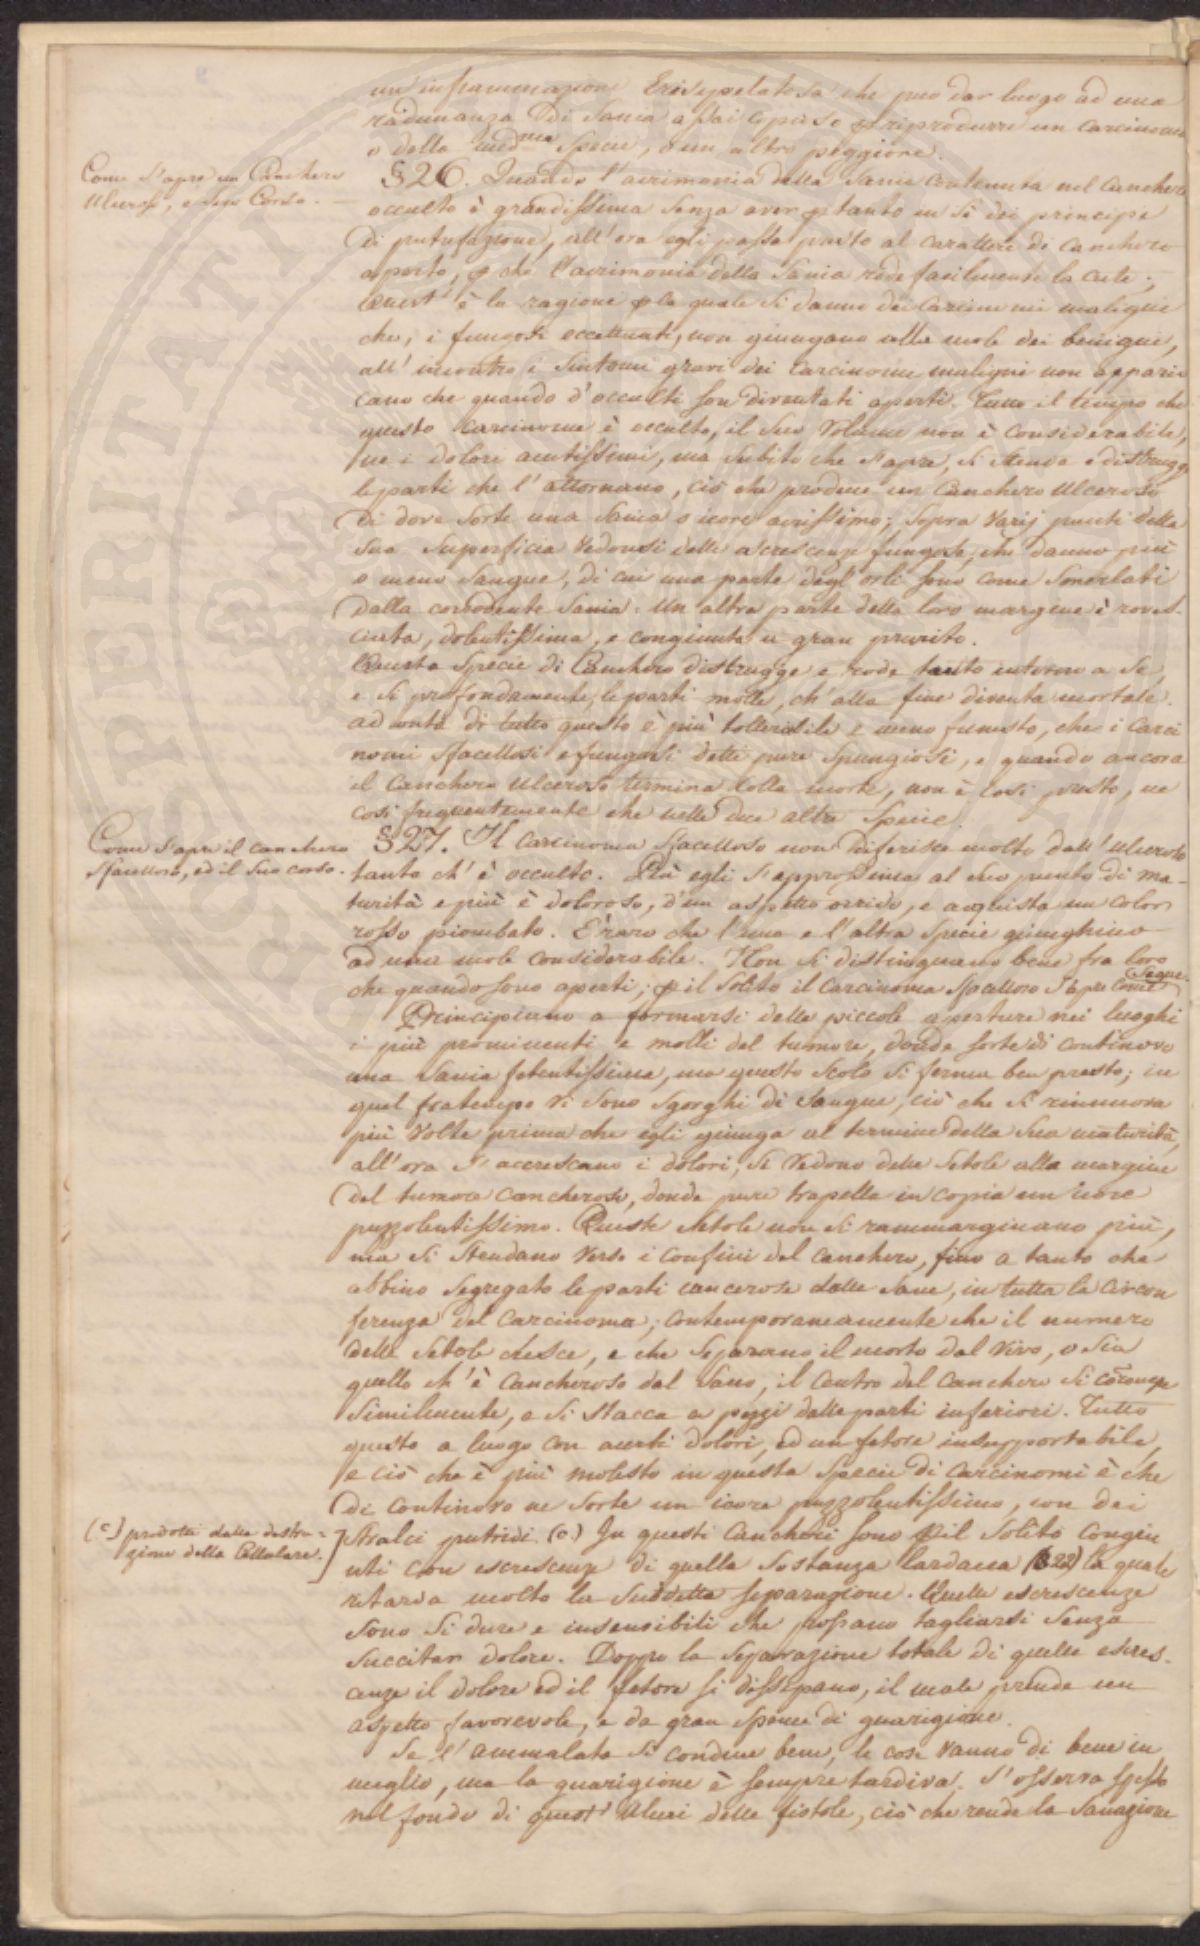 un' infiammazione Erisipelatosa che puo dar luogo ad una
radunanza di Sania assai copiosa e riprodurre un Carcinoma
o della med.ma Specie, o un altro peggiore.
Come s'apre un Canchero
Ulceroso, e suo Corso.
§26. Quando l'acrimonia della Sania contenuta nel Canchero
occulto è grandissima senza aver ptanto in sè dei principi
di putrefazione, all'ora egli passa presto al carattere di Canchero
aperto, p che l'acrimonia della Sania rode facilmente la cute;
Quest' è la ragione p la quale si danno dei Carcinomi maligni
che, i fungosi eccettuati, non giungano alla mole dei benigni,
all' incontro i Sintomi gravi dei Carcinomi maligni non appari
cano che quando d'occulti son diventati aperti. Tutto il tempo che
questo Carcinoma è occulto, il suo Volume non è considerabile,
ne i dolori acutissimi, ma subito che s'apre, si stende e distrugge
le parti che l'attornano, ciò che produce un Canchero Ulceroso
di dove sorte una Sania o icore acrissimo; sopra varij punti della
sua Superficie vedonsi delle ascrescenze fungose, che danno più
o meno Sangue, di cui una parte degl'orli sono come smerlati
dalla corrodente Sania. Un altra parte della loro margine è roves-
ciata, dolentissima, e congiunta a gran prurito.
Questa Specie di Canchero distrugge e rode tanto intorno a se,
e si profondamente, le parti molle, ch'alla fine diventa mortale.
ad onta di tutto questo è più tollerabile e meno funesto, che i Carci
nomi sfacellosi e fungosi detti pure Spungiosi, e quando ancora
il Canchero Ulceroso termina colla morte, non è così presto, ne
così frequentemente che nelle due altre Specie.
Come s'apre il canchero
sfacelloso, ed il suo corso.
§27. Il Carcinoma sfacelloso non diferisce molto dall'Ulceroso
tanto ch' è occulto. Più egli s'approssima al suo punto di ma-
turità e più è doloroso, d'un aspetto orrido, e acquista un color
rosso piombato. È raro che l'una e l'altra Specie giunghino
ad una mole considerabile. Non si distinguano bene fra loro
che quando sono aperti; p il solito il Carcinoma sfacelloso s'apre come
Segue.
Principiano a formarsi delle piccole aperture nei luoghi
i più prominenti e molli del tumore, donde sorte di continovo
una Sania fetentissima, ma questo scolo si ferma ben presto; in
quel fratempo vi sono sgorghi di Sangue, ciò che si rinnuova
più volte prima che egli giunga al termine della sua maturità,
all'ora s'accrescano i dolori, si vedono delle Setole alla margine
del tumore cancheroso, donde pure trapella in copia un icore
puzzolentissimo. Queste Setole non si rammarginano più,
ma si stendano verso i confini del canchero, fino a tanto che
abbino segregato le parti cancerose dalle sane, in tutta la circon
ferenza del Carcinoma; contemporaneamente che il numero
delle Setole cresce, e che separano il morto dal vivo, o sia
quello ch'è cancheroso dal sano, il centro del canchero si corompe
similmente, e si stacca a pezzi dalle parti inferiori. Tutto
questo a luogo con acuti dolori, ed un fetore insupportabile,
e ciò che è più molesto in questa Specie di Carcinomi è che
di continovo ne sorte un icore puzzolentissimo, con dei
(c) prodotti dalla distru-
zione della Cellulare.
stralci putridi (c) In questi Cancheri sono p il solito congiu
nti con escrescenze di quella Sostanza lardacea (§22) la quale
ritarda molto la suddetta separazione. Quelle escrescenze
sono si dure e insensibili che possano tagliarsi senza
succitar dolore. Doppo la separazione totale di quelle escres-
cenze il dolore ed il fetore si dissipano, il male prende un
aspetto favorevole, e da gran speme di guarigione.
Se l'ammalato si conduce bene, le cose vanno di bene in
meglio, ma la guarigione è sempre tardiva. S'osserva spesso
nel fondo di quest' Ulceri delle fistole, ciò che rende la Sanazione